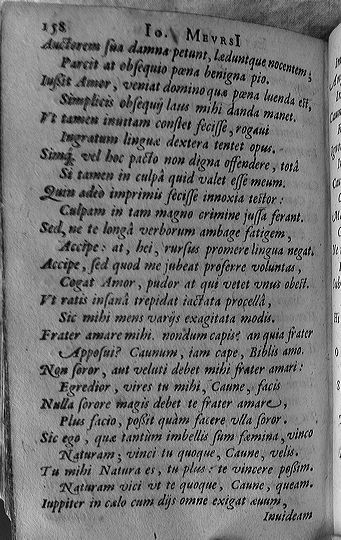 158 Io. MEVRSI
Auctorem sua damna petunt, læduntque nocentem;
Parcit at obsequio pœna benigna pio.
Iussit Amor, veniat domino quæ pœna luenda est,
Simplicis obsequij laus mihi danda manet.
Vt tamen inuitam constet fecisse, rogaui
Ingratum linguæ dextera tentet opus.
Simq; vel hoc pacto non digna offendere, totâ
Si tamen in culpâ quid valet esse meum.
Quin adeo imprimis fecisse innoxia testor:
Culpam in tam magno crimine jussa ferant.
Sed, ne te longâ verborum ambage fatigem,
Accipe: at, hei, rursus promere lingua negat.
Accipe, sed quod me jubeat proferre voluntas,
Cogat Amor, pudor at qui vetet vnus obest.
Vt ratis insanâ trepidat iactata procellâ,
Sic mihi mens varijs exagitata modis.
Frater amare mihi. nondum capis? an quia frater
Apposui? Caunum, iam cape, Biblis amo.
Non soror, aut veluti debet mihi frater amari:
Egredior, vires tu mihi, Caune, facis
Nulla sorore magis debet te frater amare,
Plus facio, possit quàm facere vlla soror.
Sic ego, quæ tantùm imbellis sum fæmina, vinco
Naturam; vinci tu quoque, Caune, velis.
Tu mihi Natura es, tu plus: te vincere possim.
Naturam vici vt te quoque, Caune, queam.
Iuppiter in cælo cum dijs omne exigat æuum,
Inuideam